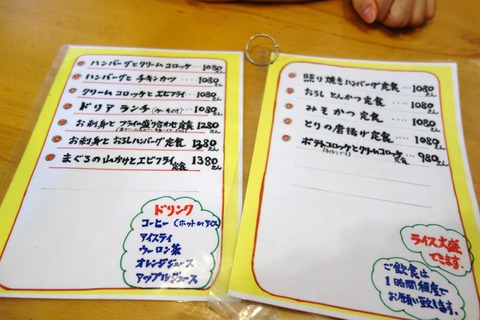 ハンバーグとクリームコロッケ 1080えん
ハンバーグと チキンカツ ‥‥ 1080えん
クリームコロッケとエビフライ 1080えん
ドリア ランチ 1080えん
お刺身と フライの盛り合わせ定食 1280えん
お刺身と おろしハンバーグ定食 1380えん
まぐろの山かけとエビフライ定食 1380えん
ドリンク
コーヒー (ホット or アイス)
アイスティ
ウーロン茶
オレンジジュース
アップルジュース
照り焼きハンバーグ定食 ‥‥ 1080えん
おろし とんかつ定食 ‥‥ 1080えん
みそかつ 定食 ‥‥ 1080えん
とりの唐揚げ定食 ‥‥ 1080えん
ポテトコロッケとクリームコロッケ定食 ‥‥ 980えん
ライス大盛
できます。
ご飲食は
1時間程度で
お願い致します。